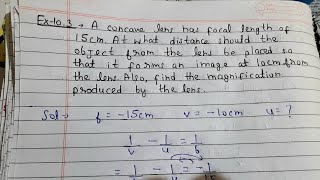 Ex-10.3 → A concave lens has focal length of
15cm. At what distance should the
object from the lens be placed so
that it forms an image at 10cm from
the lens. Also, find the magnification
produced by the lens.
Sol → f = -15cm v = -10cm u = ?
1/v - 1/u = 1/f
= 1/ - 1/u = -1/